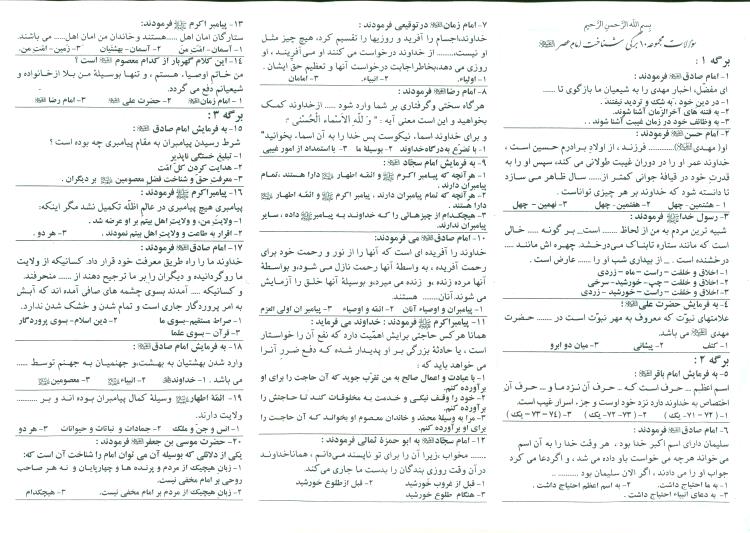 بسم الله الرحمن الرحیم
سوالات مجموعه ۱۰ برگی شناخت امام عصر
برگه ۱ :
۱- امام صادق فرمودند :
ای مفضل، اخبار مهدی را به شیعیان ما بازگوی تا .....
۱- در دین خود ، به شک و تردید نیفتند .
۲- به فتنه های آخرالزمان آشنا شوند.
۳- به وظائف خود در زمان غیبت آشنا شوند. .
۲- امام حسن فرمودند :
او( مهدی )............ فرزند ، از اولاد برادرم حسین است ،
خداوند عمر او را در دوران غیبت طولانی می کند، سپس او را به
قدرت خود در قیافهٔ جوانی کمتر از...... سال ظاهر می سازد
تا دانسته شود که خداوند بر هر چیزی تواناست .
۱- هشتمین- چهل ۲- هفتمین- چهل ۳- نهمین - چهل
۳- رسول خدا فرمودند :
شبیه ترین مردم به من از لحاظ ........ است، بر گونه ..... خالی
است که مانند ستاره تابناک می‌درخشد. چهره اش مانند ....
درخشنده است . ... از بیداری شب او را ...... عارض است .
۱- اخلاق و خلقت – راست – ماه – زردی
۲- اخلاق و خلقت – چپ- خورشید- سرخی
۳- اخلاق و خلقت – راست – خورشید – زردی
۴- به فرمایش حضرت علی :
علامتهای نبوت که معروف به مهر نبوت است در ........ حضرت
مهدی می باشد.
۱- کتف ۲- پیشانی ۳- میان دو ابرو
برگه ۲ :
۵- به فرمایش امام باقر :
اسم اعظم ... حرف است که .. حرف آن نزد ما و ... حرف آن
اختصاص به خداوند دارد نزد خود اوست و جزء اسرار غیب است.
۱- ( ۷۲ – ۷۱- یک ) ۲- (۷۳- ۷۲- یک ) ۳- (۷۴ – ۷۳- یک )
۶- امام صادق فرمودند :
سلیمان دارای اسم اکبر خدا بود ، هر وقت خدا را به آن اسم
می خواند هرچه می خواست باو داده می شد ، و اگردعا می کرد
جواب او را می دادند ، اگر الان سلیمان بود ........... ..
۱- به ما احتیاج داشت. ۲- به اسم اعظم احتیاج داشت .
۳- به دعای انبیاء احتیاج داشت .
۷- امام زمان درتوقیعی فرمودند :
خداوند،اجسام را آفرید و روزیها را تقسیم کرد، هیچ چیز مثل
او نیست،........ از خداوند درخواست می کنند او می‌آفریند ، او
روزی می دهد،بخاطراجابت درخواست آنها و تعظیم حق ایشان .
۱- اولیاء. ۲- انبیاء. ۳- امامان
۸- امام رضا فرمودند :
هرگاه سختی وگرفتاری بر شما وارد شود ..... ازخداوند کمک
بخواهید و این است معنی آیه : " وَ لِلّهِ الْأَسْماء الْحُسْنی"
و برای خداوند اسماء نیکوست پس خدا را به آن اسماء بخوانید"
۱- با تضرع به‌درگاه‌خداوند ۲- بوسیله ما ۳- با استمداد از امور غیبی
۹- به فرمایش امام سجاد :
۱- هرآنچه که پیامبر اکرم و ائمه اطهار دارا هستند ،تمام
پیامبران دارند.
۲- هرآنچه که تمام پیامبران دارند ، پیامبر اکرم و ائمه اطهار
دارا هستند .
۳- هیچکدام از چیزهائی را که خداوند به پیامبر داده ، سایر
پیامبران ندارند.
۱۰- امام صادق می فرمودند:
خداوند را آفریده ای است که آنها را از نور و رحمت خود برای
رحمت آفریده ، به واسطهٔ آنها رحمت نازل می شود،و بواسطهٔ
آنها مرده زنده ،و زنده می میرد،و بوسیلهٔ آنها خلق را آزمایش
می شوند.آنان........ هستند.
۱- پیامبران و اوصیاء آنان ۲- ائمه و اوصیاء ۳- پیامبران اولی العزم
۱۱- پیامبراکرم فرمودند : خداوند می فرماید :
همانا هرکس حاجتی برایش اهمیت دارد که نفع آن را خواستار
است ، یا حادثهٔ بزرگی بر او پدیدار شده که دفع ضرر آن‌را
می خواهد باید که :
۱- با عبادت و اعمال صالح به من تقرب جوید که آن حاجت را برای او
برآورده کنم.
۲- خود را وقف نیکی و خدمت به مخلوقات کند تا حاجتش را
برآورده کنم .
۳- مرا به وسیله محمد و خاندان معصوم او بخواند که آن حاجت را
برای او برآورده کنم .
۱۲- امام سجاد به ابو حمزهٔ ثمالی فرمودند :
....... مخواب ،زیرا آن را برای تو ناپسند می‌دانم ، همانا‌خداوند
درآن وقت روزی بندگان را بدست ما جاری می‌کند.
۱- قبل از غروب خورشید ۲- قبل ازطلوع خورشید
۳- هنگام طلوع خورشید
۱۳- پیامبر اکرم فرمودند:
ستارگان امان اهل .....هستند و خاندان من امان اهل..... می باشند.
۱- آسمان- امت من ۲- آسمان- بهشتیان ۳- زمین- امت من.
۱۴- این کلام گهربار از کدام معصوم است ؟
من خاتم اوصیاء هستم ، و تنها بوسیلهٔ من بلا ازخانواده و
شیعیانم دفع می گردد.
۱- امام زمان ۲- حضرت علی ۳- امام رضا
برگه ۳ :
۱۵- به فرمایش امام صادق :
شرط رسیدن پیامبران به مقام پیامبری چه بوده است ؟
۱- تبلیغ خستگی ناپذیر
۲- هدایت کردن کل امت
۳- معرفت حق و شناخت فضل معصومین بر دیگران .
۱۶- پیامبراکرم فرمودند :
پیامبری هیچ پیامبری در عالم اظلّه تکمیل نشد مگر اینکه:
۱- ولایت من، و ولایت اهل بیتم بر او عرضه شد .
۲- اقرار به طاعت و ولایت اهل بیتم نمودند . ۳- هر دو .
۱۷- امام صادق فرمودند:
خداوند ما را راه طریق معرفت خود قرار داد. کسانیکه از ولایت
ما روگردانیده و دیگران را بر ما ترجیح دهند از ...... منحرفند.
و کسانیکه .... آمدند بسوی چشمه های صافی آمده اند که آبش
به امر پروردگار جاری است و تمام شدن و خشک شدن ندارد.
۱- صراط مستقیم-بسوی ما ۲- دین اسلام- بسوی پروردگار
۳- قرآن – بسوی علما
۱۸- به فرمایش امام صادق :
وارد شدن بهشتیان به بهشت،و جهنمیان به جهنم توسط .....
می باشد . ۱- خداوند ۲- انبیاء ۳- معصومین
۱۹- ائمه اطهار وسیلهٔ کمال پیامبران بوده اند و بر .........
ولایت دارند.
۱- انس و جن و ملک ۲- جمادات و نباتات و حیوانات ۳- هر دو
۲۰- حضرت موسی بن جعفر فرمودند :
یکی از دلائلی که بوسیله آن می توان امام را شناخت آن است که:
۱- زبان هیچیک از مردم و پرنده ها و چهارپایان و نه هر صاحب
روحی بر امام مخفی نیست.
۲- زبان هیچیک از مردم بر امام مخفی نیست. ۳- هیچکدام